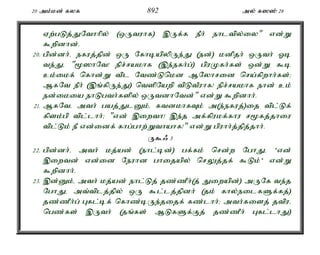 20 அம்மன் கலக 892 அல் கஸஸ் 28
ஏற்படுத்துவோரில் (ஒருவராக) இருக்க நீர் நாடவில்லை" என்று
கூறினான்.
20. பின்னர், நகரத்தின் ஒரு கோடியிலிருந்து (நன்) மனிதர் ஒருவர் ஓடி
வந்து, "மூஸாவே! நிச்சயமாக (இந்நகர்ப்) பிரமுகர்கள் ஒன்று கூடி
உம்மைக் கொன்று விட வேண்டுமென ஆலோசனை செய்கிறார்கள்;
ஆகவே நீர் (இங்கிருந்து) வெளியேறி விடுவீராக! நிச்சயமாக நான் உம்
நன்மையை நாடுபவர்களில் ஒருவனாவேன்" என்று கூறினார்.
21. ஆகவே, அவர் பயத்துடனும், கவனமாகவும் அ(ந்நகரத்)தை விட்டுக்
கிளம்பி விட்டார்; "என் இறைவா! இந்த அக்கிரமக்கார சமூகத்தாரை
விட்டும் நீ என்னைக் காப்பாற்றுவாயாக!" என்று பிரார்த்தித்தார்.
ருகூஃ 3
22. பின்னர், அவர் மத்யன் (நாட்டின்) பக்கம் சென்ற போது, 'என்
இறைவன் என்னை நேரான பாதையில் செலுத்தக் கூடும்' என்று
கூறினார்.
23. இன்னும், அவர் மத்யன் நாட்டுத் தண்ணீர்(த் துறையின்) அருகே வந்த
போது, அவ்விடத்தில் ஒரு கூட்டத்தினர் (தம் கால்நடைகளுக்குத்)
தண்ணீர்ப் புகட்டிக் கொண்டிருந்ததைக் கண்டார்; அவர்களைத் தவிர,
பெண்கள் இருவர் (தங்கள் ஆடுகளுக்குத் தண்ணீர் புகட்டாது)